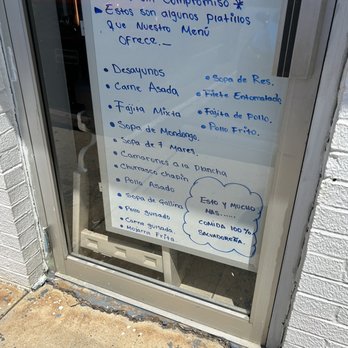 Compromiso *
Estos son algunos platillos
que Nuestro Menú
Ofrece.—
• Desayunos
• Carne Asada
• Fajita Mixta
• Sopa de Mondongo.
• Sopa de 7 Mares.
• Camarones a la Plancha
• Churrasco chapin
• Pollo Asado
• Sopa de Gallina
• Pollo guisado
• Carne guisada
• Mojarra Frita
• Sopa de Res.
• Filete Entomatado
• Fajita de Pollo.
• Pollo Frito.
Esto y mucho
más......
Comida 100%
Salvadoreña.